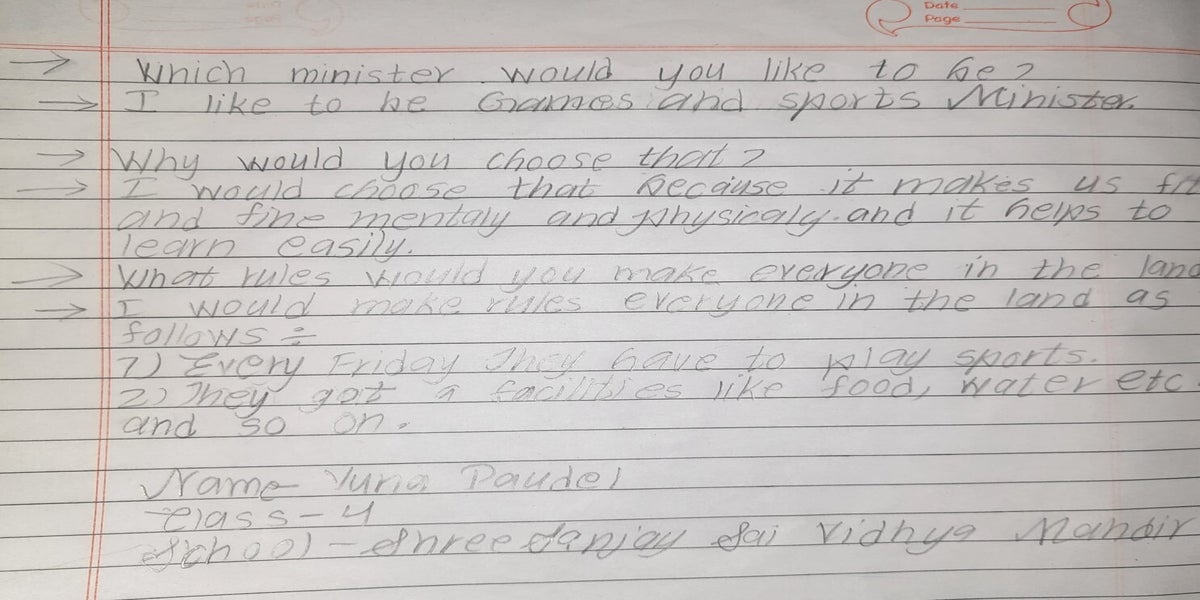 Date
Page
→ Which minister would you like to be?
→ I like to be Games and sports Minister.
→ Why would you choose that?
→ I would choose that because it makes us fit
and fine mentaly and physicaly. and it helps to
learn easily.
→ What rules would you make everyone in the land
→ I would make rules everyone in the land as
follows :-
1) Every Friday They have to play sports.
2) They got a facilities like food, water etc
and so on.
Name - Yuna Paudel
Class - 4
School - Shree Sanjay Sai Vidhya Mandir